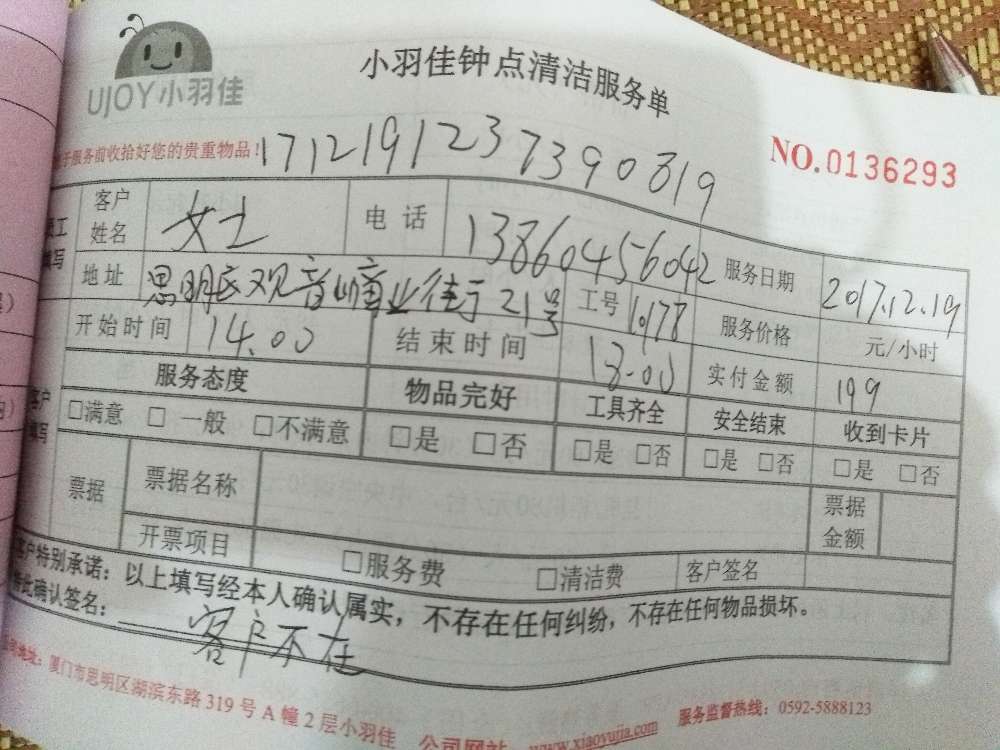 UJOY小羽佳
小羽佳钟点清洁服务单
于服务前收拾好您的贵重物品！
17121912373390819
NO.0136293
客户姓名 女士 电话 13860456042 服务日期 2017.12.19
地址 思明区观音山商业街 21号 工号 服务价格 元/小时
开始时间 14.00 结束时间 18.00 实付金额 199
服务态度 物品完好 工具齐全 安全结束 收到卡片
□满意 □一般 □不满意 □是 □否 □是 □否 □是 □否 □是 □否
票据 票据名称 票据金额
开票项目 □服务费 □清洁费 客户签名
客户特别承诺：以上填写经本人确认属实，不存在任何纠纷，不存在任何物品损坏。
特此确认签名： 客户不在
公司地址：厦门市思明区湖滨东路 319 号 A 幢 2 层小羽佳 公司网站：www.xiaoyujia.com 服务监督热线：0592-5888123